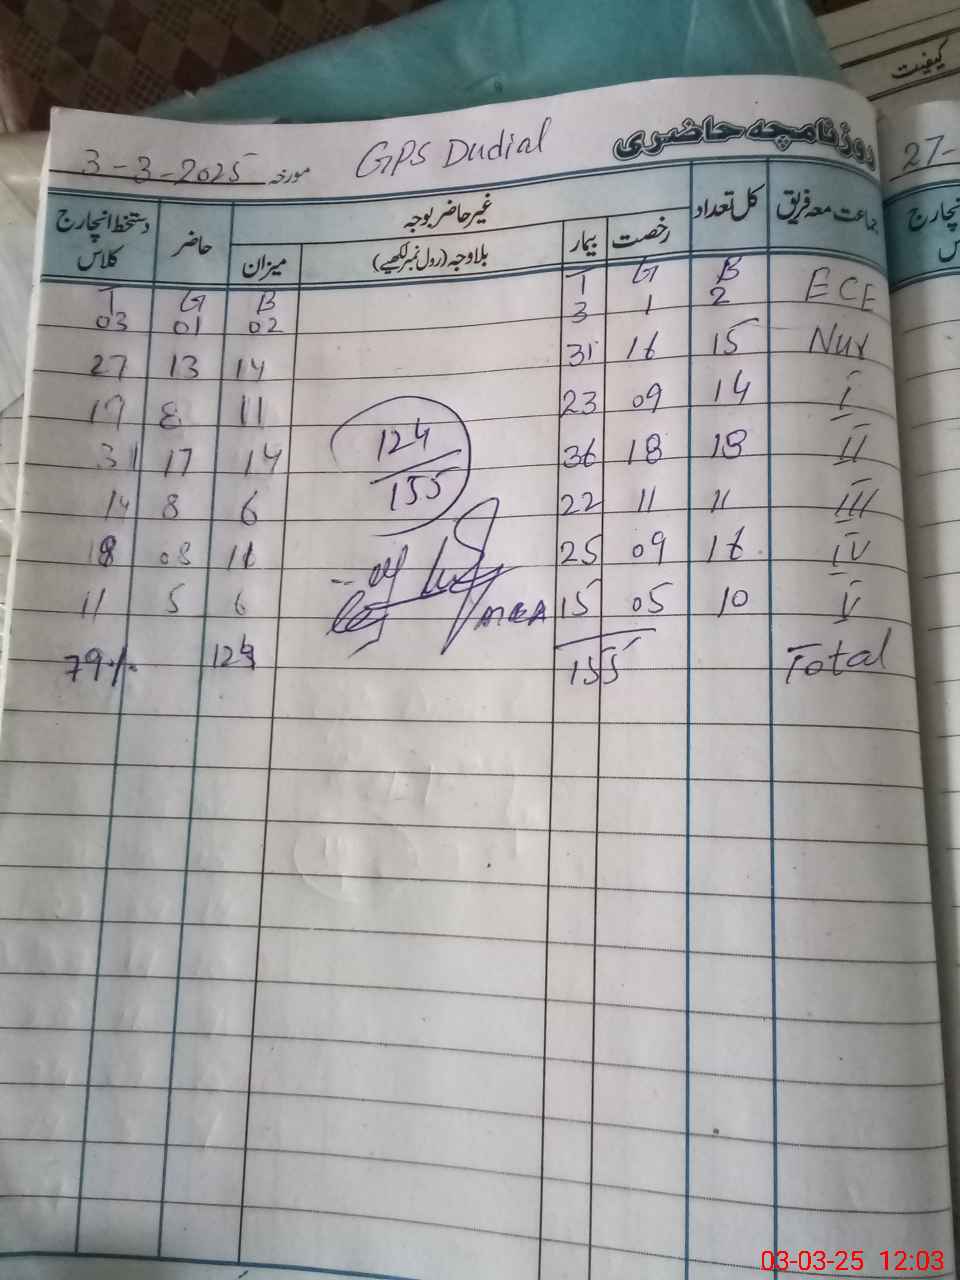 کیفیت
روزنامچہ حاضری
GPS Dudial
مورخہ 3-3-2025
27-
جماعت معہ فریق
کل تعداد
غیر حاضر بوجہ
رخصت
بیمار
بلاوجہ (رول نمبر لکھیے)
میزان
حاضر
دستخط انچارج کلاس
T G B T G B
03 01 02 3 1 2 ECE
27 13 14 31 16 15 Nur
19 8 11 23 09 14 I
31 17 14 36 18 18 II
14 8 6 22 11 11 III
18 08 11 25 09 16 IV
11 5 6 15 05 10 V
124
155
MEA
79% 124 155 Total
03-03-25 12:03